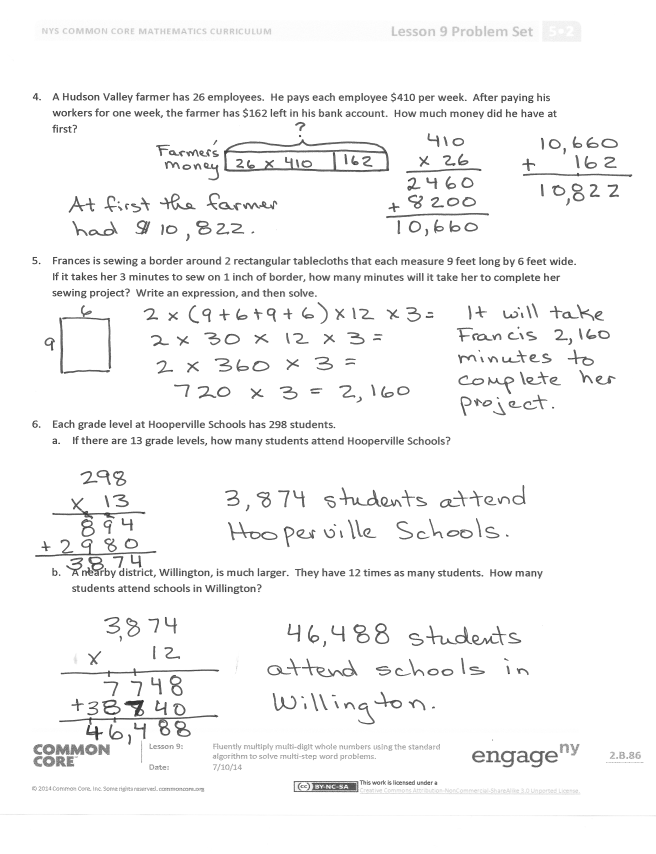 NYS COMMON CORE MATHEMATICS CURRICULUM
Lesson 9 Problem Set 5•2
4. A Hudson Valley farmer has 26 employees. He pays each employee $410 per week. After paying his
workers for one week, the farmer has $162 left in his bank account. How much money did he have at
first?
?
Farmer's
money
26 x 410
162
410
x 26
2460
+ 8200
10,660
10,660
+ 162
10,822
At first the farmer
had $10,822.
5. Frances is sewing a border around 2 rectangular tablecloths that each measure 9 feet long by 6 feet wide.
If it takes her 3 minutes to sew on 1 inch of border, how many minutes will it take her to complete her
sewing project? Write an expression, and then solve.
6
9
2 x (9+6+9+6) x 12 x 3 =
2 x 30 x 12 x 3 =
2 x 360 x 3 =
720 x 3 = 2,160
It will take
Francis 2,160
minutes to
complete her
project.
6. Each grade level at Hooperville Schools has 298 students.
a. If there are 13 grade levels, how many students attend Hooperville Schools?
298
x 13
894
+ 2980
3,874
3,874 students attend
Hooperville Schools.
b. A nearby district, Willington, is much larger. They have 12 times as many students. How many
students attend schools in Willington?
3,874
x 12
7748
+38740
46,488
46,488 students
attend schools in
Willington.
COMMON
CORE
Lesson 9:
Date:
Fluently multiply multi-digit whole numbers using the standard
algorithm to solve multi-step word problems.
7/10/14
engageny
2.B.86
© 2014 Common Core, Inc. Some rights reserved. commoncore.org
(cc) BY-NC-SA
This work is licensed under a
Creative Commons Attribution-NonCommercial-ShareAlike 3.0 Unported License.